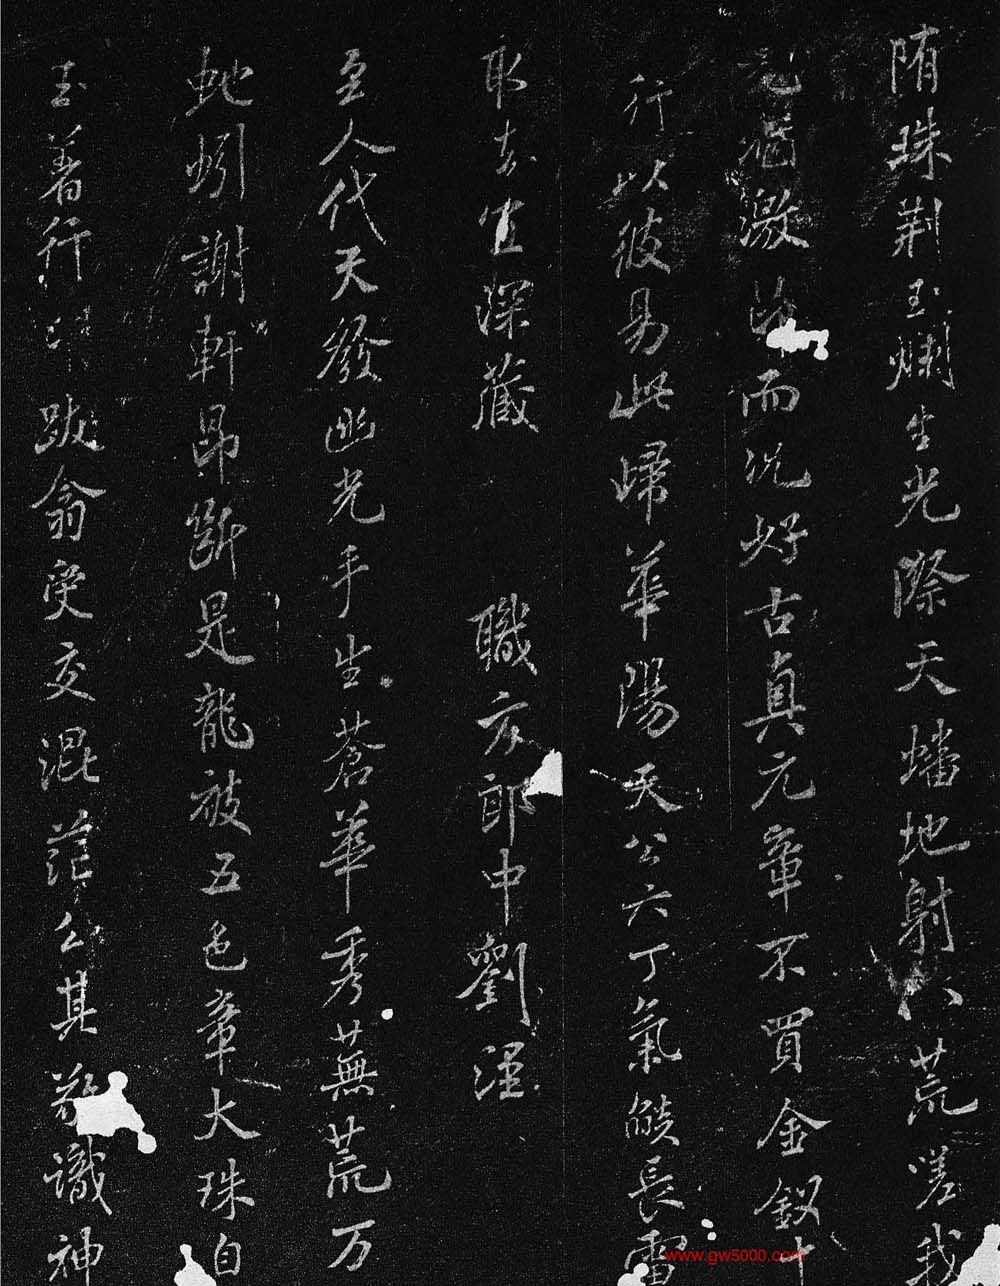 隋珠荆玉爛生光際天蟠地射八荒嗟我
猶激而況好古真元章不買金釵十
行以彼易此歸華陽天公六丁氣燄長雷
取去宜深藏 職方郎中劉涇
至人代天發幽光手生蒼華秀蕪荒万
虵蚓謝軒昂斷是龍被五色章大珠白
玉著行跋翁受交混茫公其 識神
www.gw5000.com